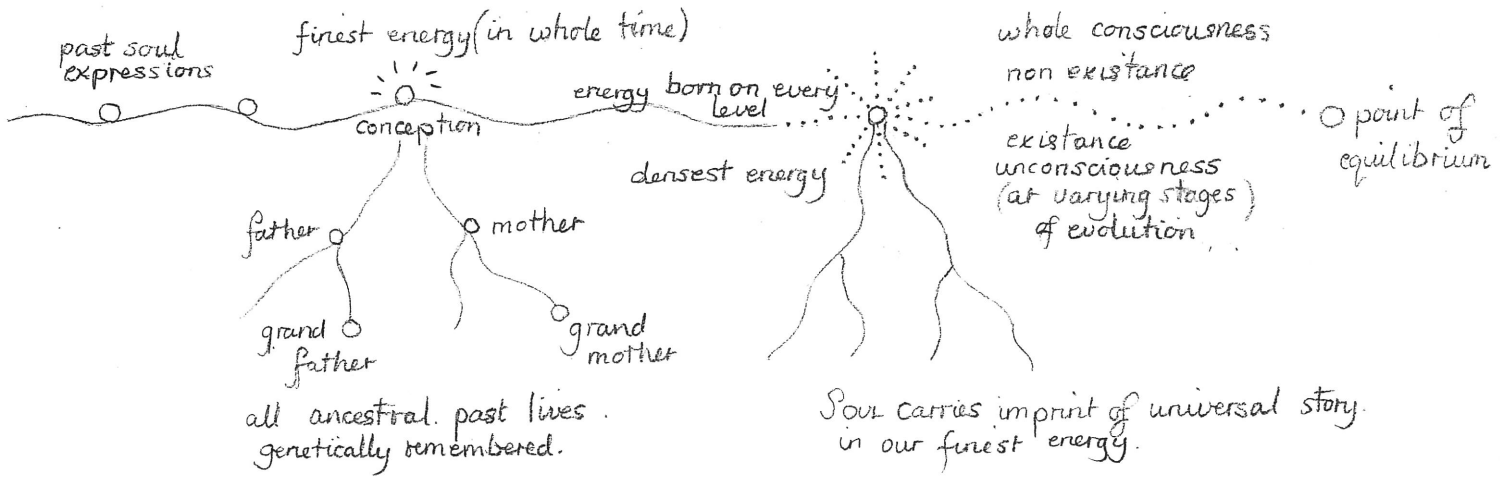 past soul
expressions
finest energy (in whole time)
conception
energy born on every
level
densest energy
whole consciousness
non existance
existance
unconsciousness
(at varying stages)
of evolution
point of
equilibrium
father
mother
grand
father
grand
mother
all ancestral. past lives.
genetically remembered.
Soul carries imprint of universal story.
in our finest energy.